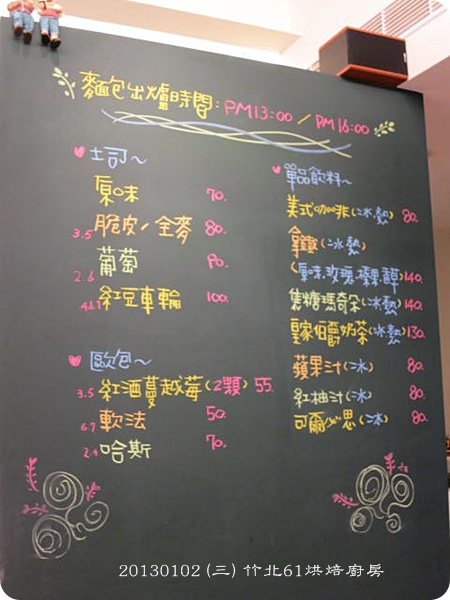 麵包出爐時間：PM13:00 / PM16:00
土司～
原味 70.
3.5 脆皮/全麥 80.
2.6 葡萄 90.
4.6.7 紅豆車輪 100.
歐包～
3.5 紅酒蔓越莓(2顆) 55.
6.7 軟法 50.
2.4 哈斯 70.
單品飲料～
美式咖非(冰.熱) 80.
拿鐵(冰熱)
(原味.玫瑰.榛果.
140.
焦糖瑪奇朵(冰熱) 140.
皇家伯爵奶茶(冰熱) 130.
蘋果汁(冰) 80.
紅柚汁(冰) 80.
可爾必思(冰) 80.
20130102 (三) 竹北61烘焙廚房